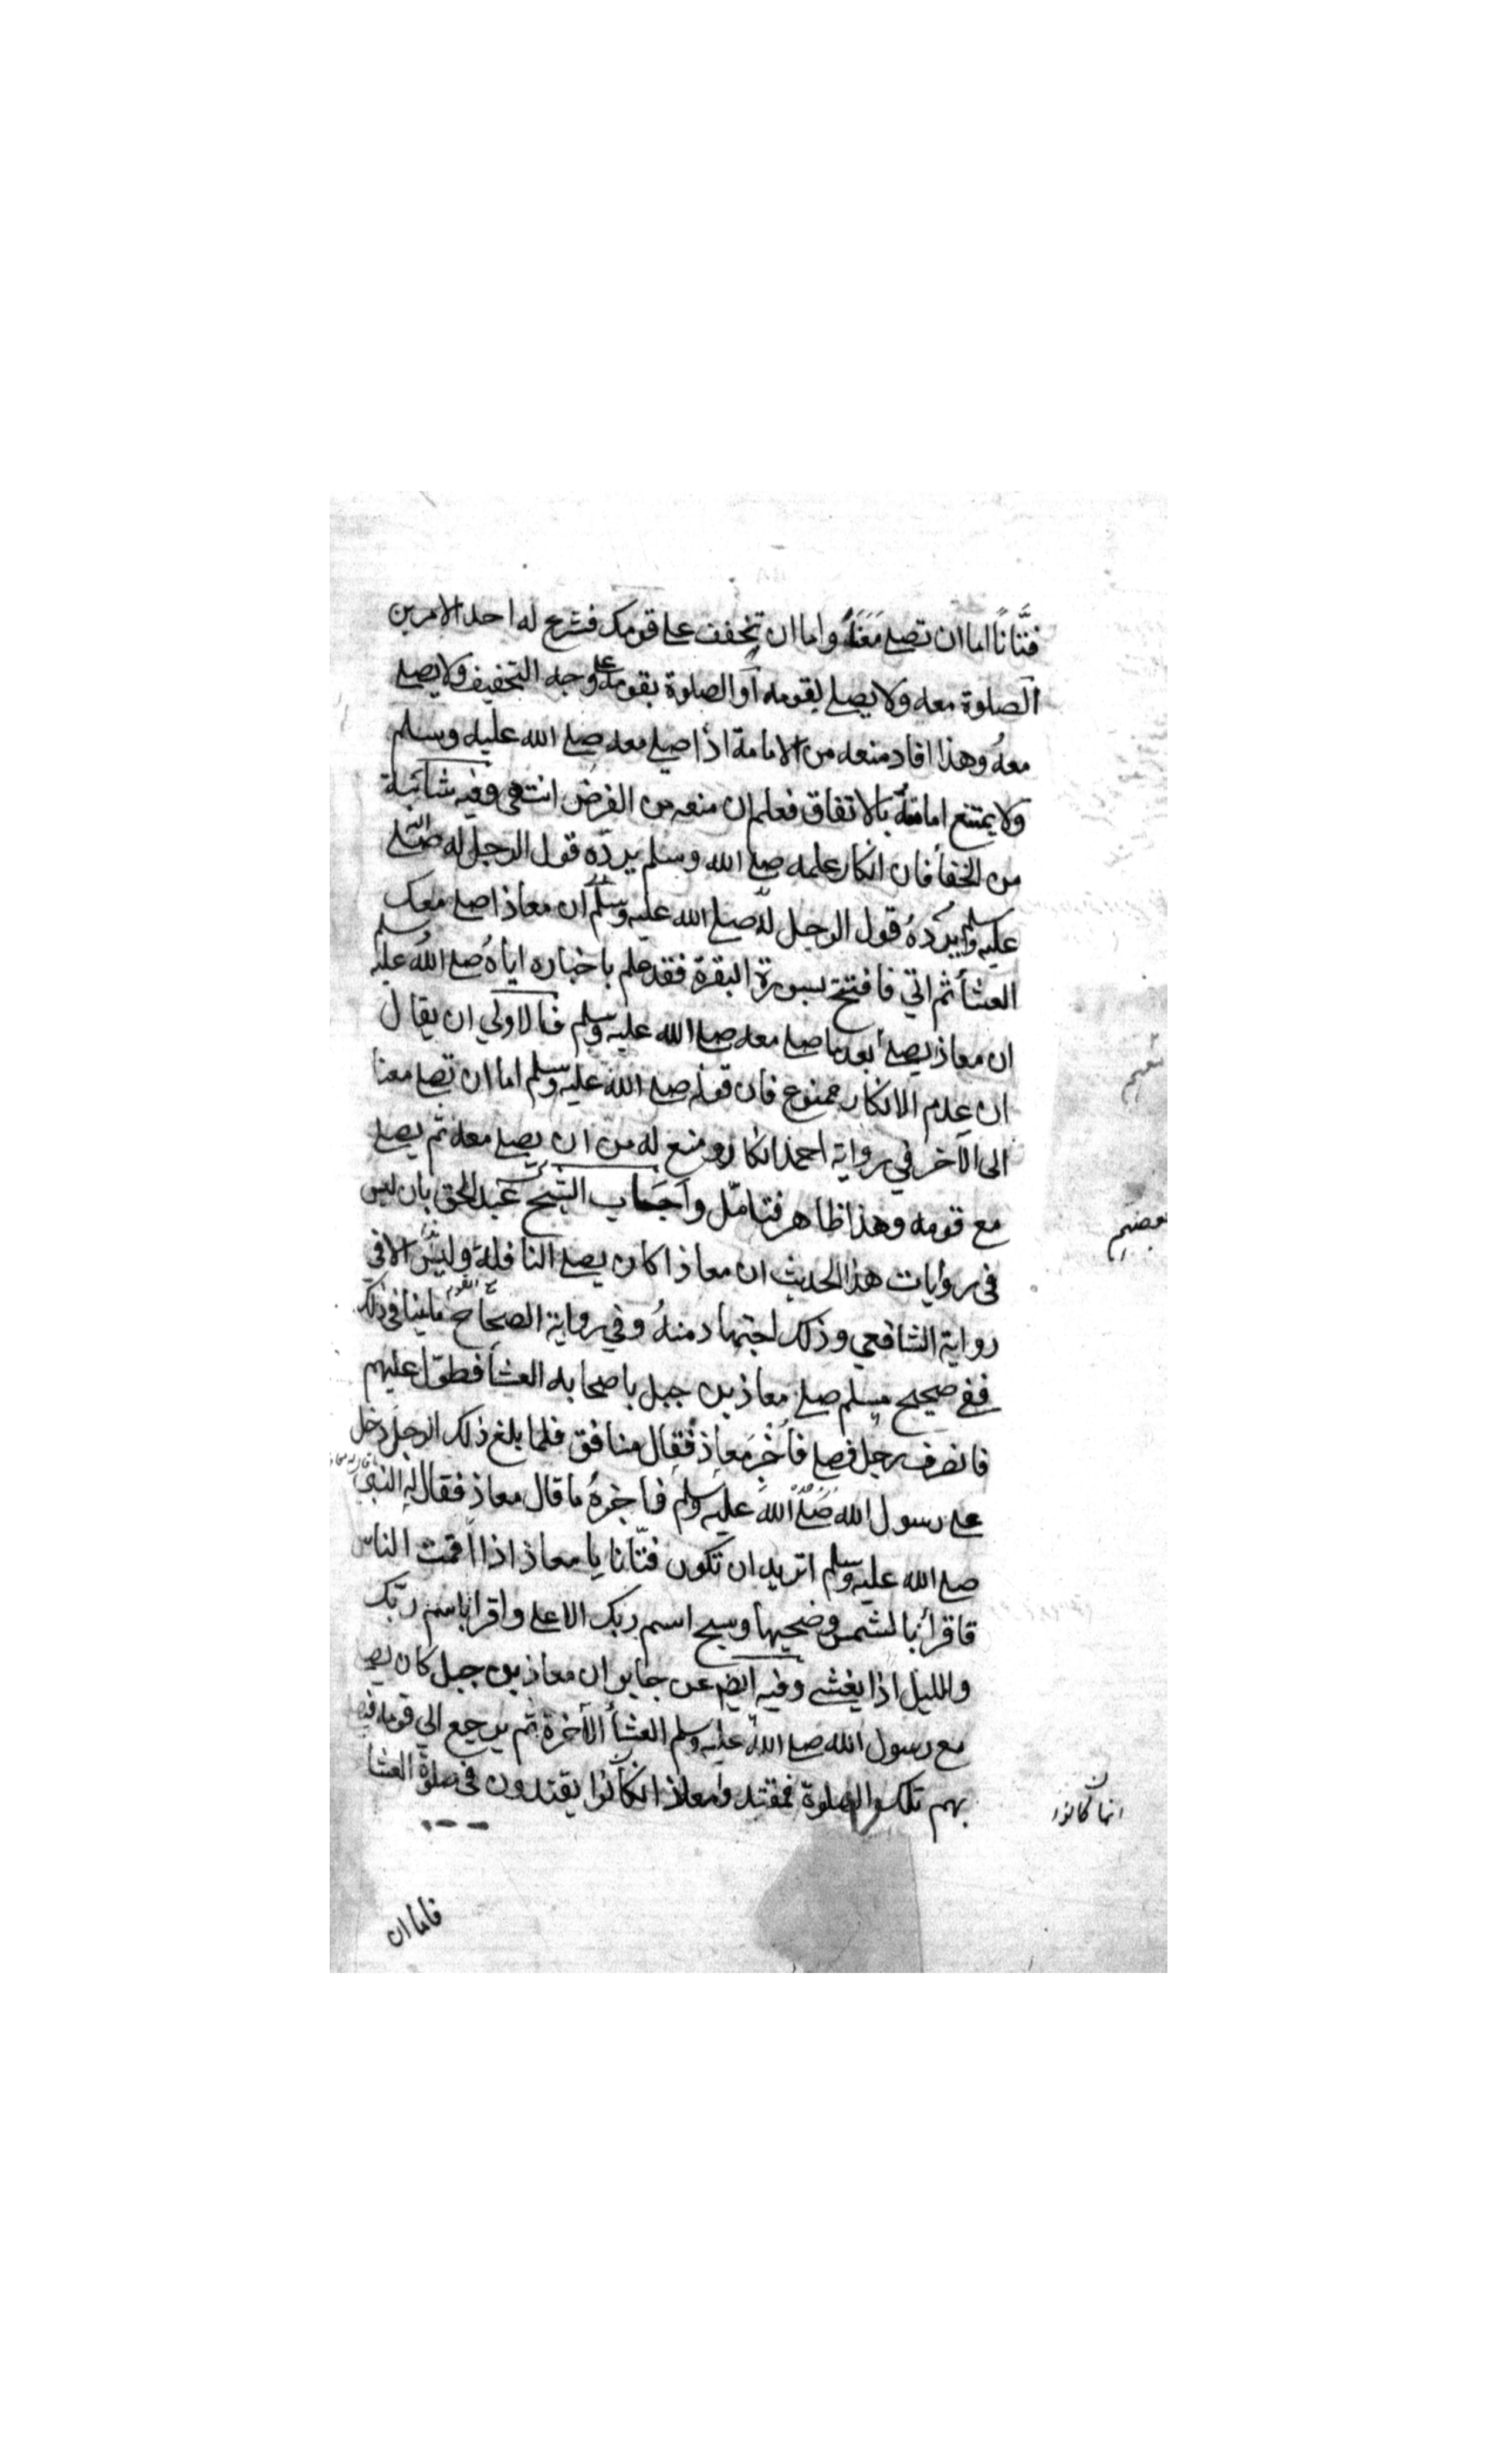 فتَّانًا اما ان تصلے مَعَنَا واما ان تخفف علے قومك فشرع له احد الامرين
الصلوة معه ولا يصلے بقومه او الصلوة بقومه علے وجه التخفيف ولا يصلے
معهُ وهذا افاد منعه من الامامة اذا صلے معه صلے الله عليه وسلم
ولا يمتنع امامته بالاتفاق فعلم ان منعه من الفرض انتهى وفيه شائبة
من الخفأ فان انكار علمه صلے الله وسلم يردّه قول الرجل له صلے الله
عليه وسلم يردهُ قول الرجل لهُ صلے الله عليه وسلم ان معاذا صلے معك
العشأ ثم اتي فافتتح بسورة البقرة فقد علم باخباره اياهُ صلے اللهُ عليه وسلم
ان معاذ يصلے بعد ما صلے معه صلے الله عليه وسلم فالاولي ان يقال
ان عدم الانكار ممنوع فان قوله صلے الله عليه وسلم اما ان تصلے معنا
الى الآخر في رواية احمد انكار ومنع له من ان يصلے معه ثم يصلے
مع قومه وهذا ظاهر فتامّل واجاب الشيخ عبد الحق بان ليس
في روايات هذا الحديث ان معاذا كان يصلے النافلة وليس الا في
رواية الشافعي وذلك اجتهاد منهُ وفي رواية الصحاح ما ينافي ذلك
ففي صحيح مسلم صلے معاذ بن جبل باصحابه العشأ فطوّل عليهم
فانصرف رجل فصلے فأُخْبِرَ معاذ فقال منافق فلما بلغ ذلك الرجل دخل
علے رسول الله صَلے اللهُ عليه وسلم فاخبرهُ ما قال معاذ فقال له النبي
صلے الله عليه وسلم اتريد ان تكون فتّانا يا معاذ اذا اممت الناس
فاقرأ بالشمس وضحيها وسبح اسم ربك الاعلے واقرا باسم ربّك
والليل اذا يغشے وفيه ايضم عن جابر ان معاذ بن جبل كان يصلے
مع رسول الله صلے الله عليه وسلم العشأ الآخرة ثم يرجع الي قومه فيصلے
بهم تلك الصلوة فمقتدوا معاذ انكانوا يقتدون في صلوة العشا
انما كانوا
فاما ان